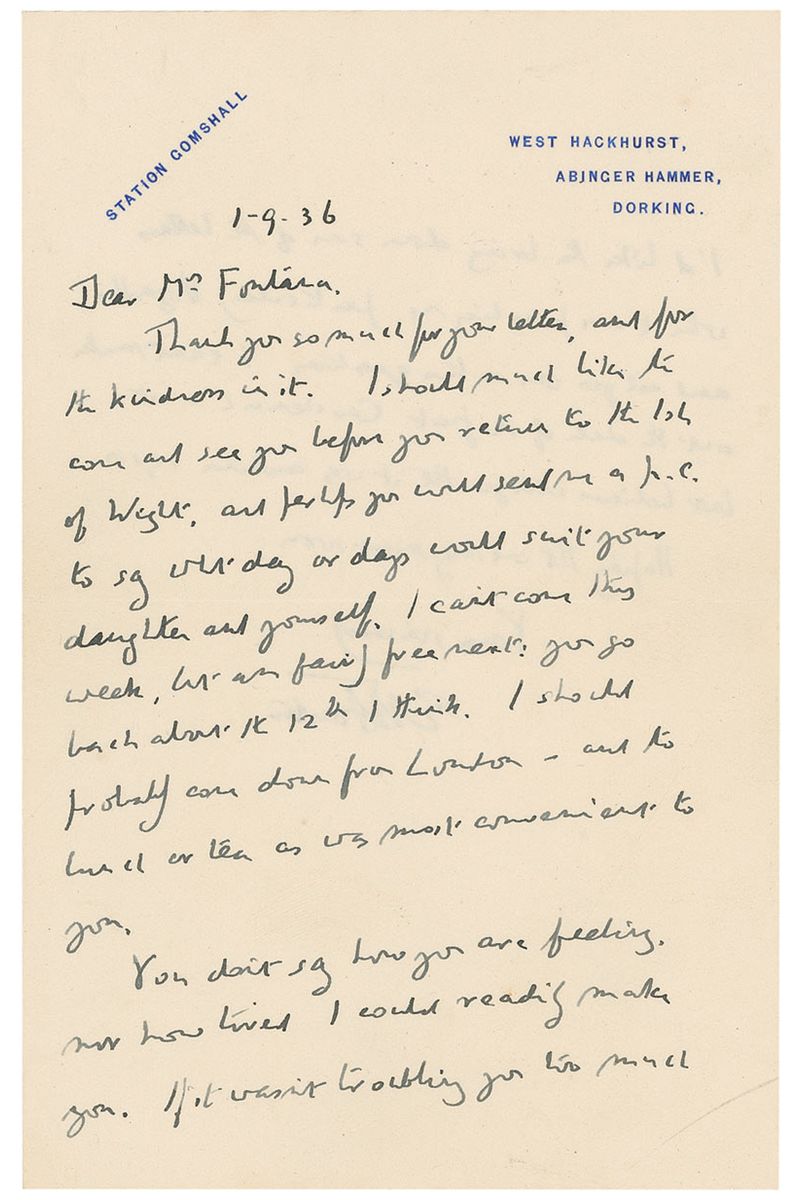 STATION GOMSHALL
WEST HACKHURST,
ABINGER HAMMER,
DORKING.
1-9-36
Dear Mrs Fontana.
Thank you so much for your letter, and for
the kindness in it. I should much like to
come and see you before you return to the Isle
of Wight, and perhaps you would send me a p.c.
to say what day or days would suit your
daughter and yourself. I can't come this
week, but am fairly free next: you go
back about the 12th I think. I should
probably come down from London – and to
lunch or tea as was most convenient to
you.
You don't say how you are feeling,
nor how tired I could readily make
you. If it wasn't troubling you too much